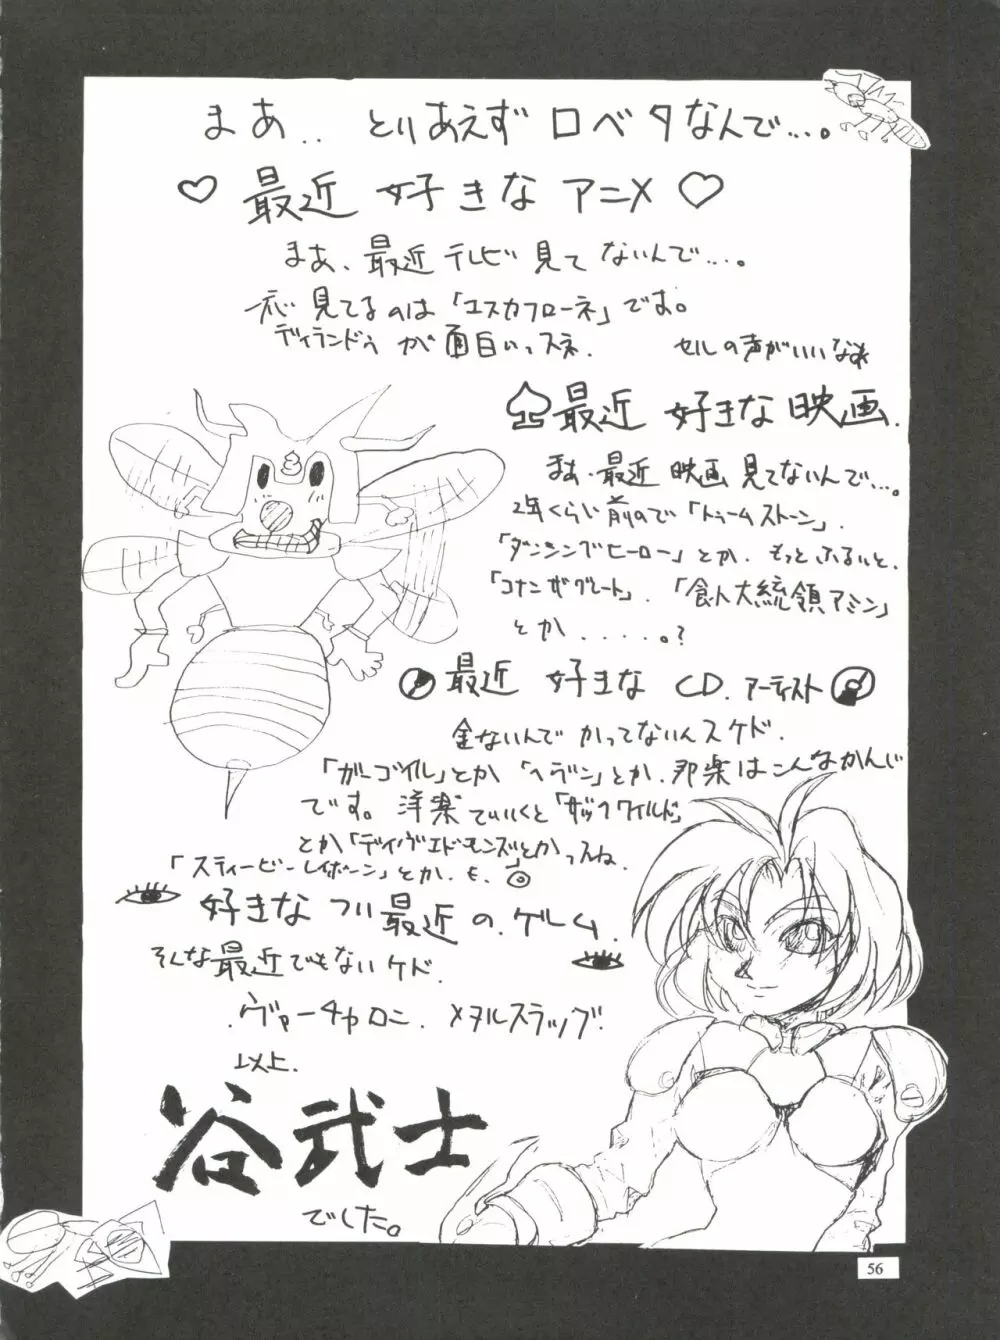 まあ.. とりあえずロベタなんで...。
♡ 最近 好きな アニメ ♡
まあ、最近 テレビ 見て ないんで...。
見てるのは「エスカフローネ」です。
ディランドゥ が 面白いっスネ.
セルの声がいいなあ
最近 好きな 映画.
まあ、最近 映画 見てないんで...。
2年くらい前ので「トゥームストーン」.
「ダンシングヒーロー」とか. もっとふるいと、
「コナンザグレート」.「食人大統領アミン」
とか.....。?
最近 好きな CD. アーティスト
金ないんで かってないんスケド.
「ガーゴイル」とか「ヘヴン」とか. 邦楽はこんなかんじ
です。洋楽でいくと「ザックワイルド」
とか「デイヴエドモンズ」とかっスね.
「スティービーレイボーン」とか. も.
好きな つい最近 の. ゲーム.
そんな最近でもないケド.
.ヴァーチャロン. メタルスラッグ!
以上.
谷武士
でした。
56